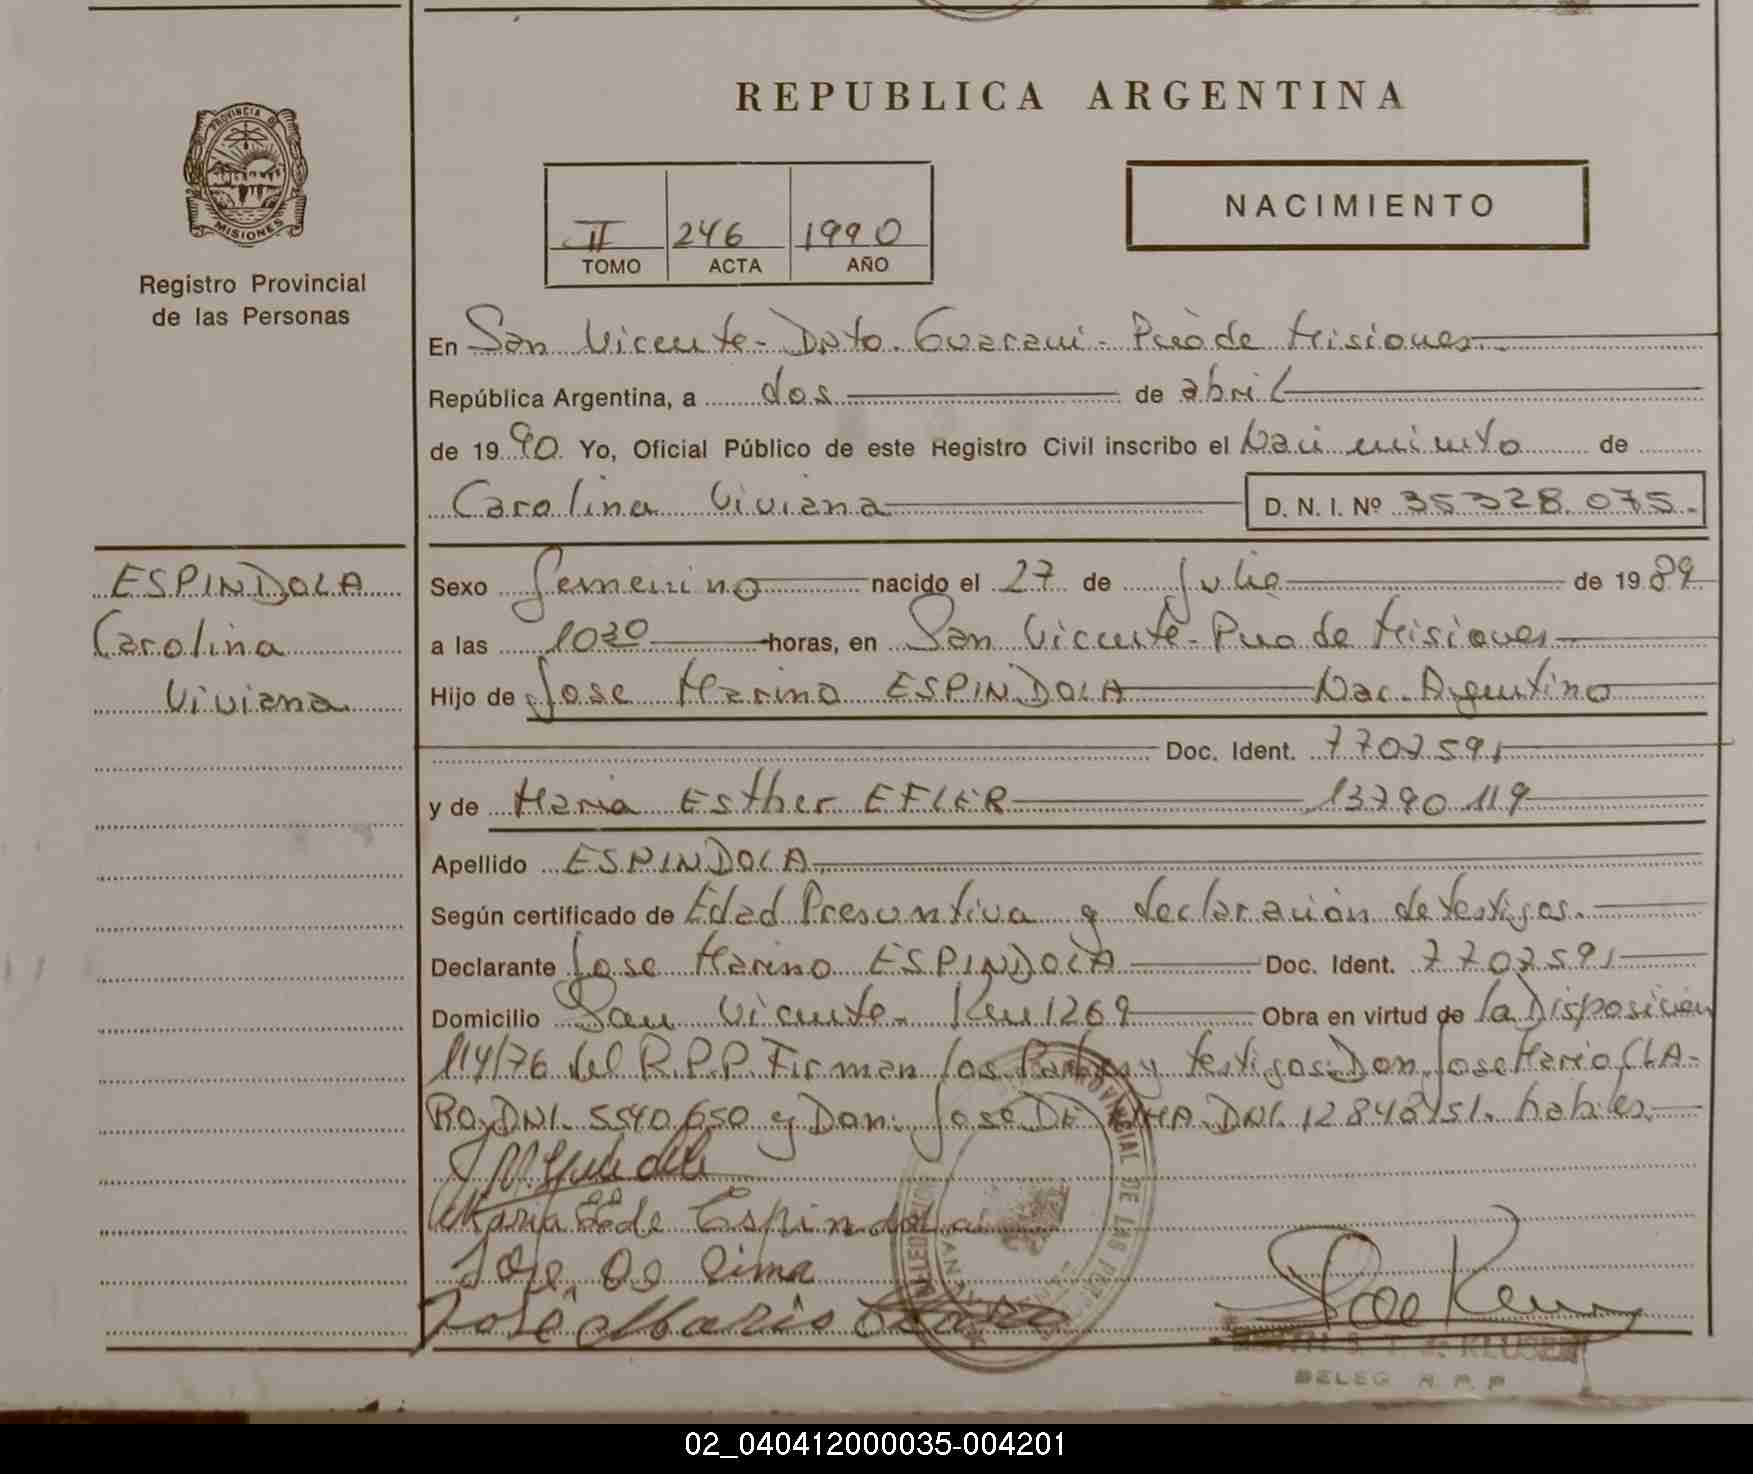 REPUBLICA ARGENTINA
PROVINCIA DE
MISIONES
Registro Provincial
de las Personas
II 246 1990
TOMO ACTA AÑO
NACIMIENTO
En San Vicente - Dpto. Guarani - Pciò de Misiones
República Argentina, a dos de abril
de 1990 Yo, Oficial Público de este Registro Civil inscribo el Nacimiento de
Carolina Viviana D. N. I. Nº 35328.075.
ESPINDOLA
Carolina
Viviana
Sexo femenino nacido el 27 de Julio de 1989
a las 1030 horas, en San Vicente - Pcia de Misiones
Hijo de Jose Marino ESPINDOLA Nac. Argentino
Doc. Ident. 7707591
y de Maria Esther EFLER 13790119
Apellido ESPINDOLA
Según certificado de Edad Presuntiva y declaración de testigos.
Declarante Jose Marino ESPINDOLA Doc. Ident. 7707591
Domicilio San Vicente - Km 1269 Obra en virtud de la Disposición
114/76 del R.P.P. Firman los Padres y testigos: Don Jose Mario CLA-
RO, DNI. 5540650 y Don: Jose DE DNI. 12848151. habiles.
Maria E. de Espindola
Jose De Lima
José Mario
KLUSER
DELEG R.P.P
02_040412000035-004201